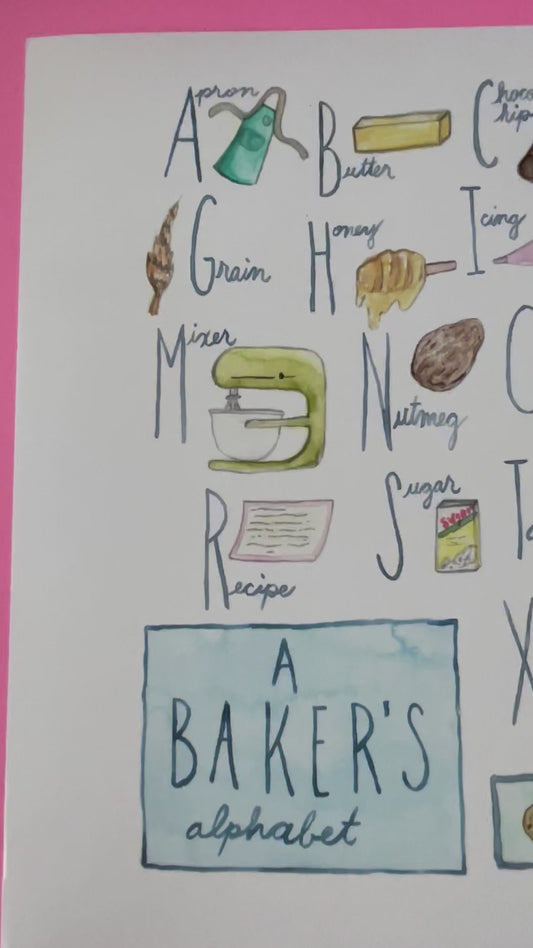 Apron
Butter
Grain
Honey
Icing
Mixer
Nutmeg
Recipe
Sugar
SUGAR
T
X
A
BAKER'S
alphabet